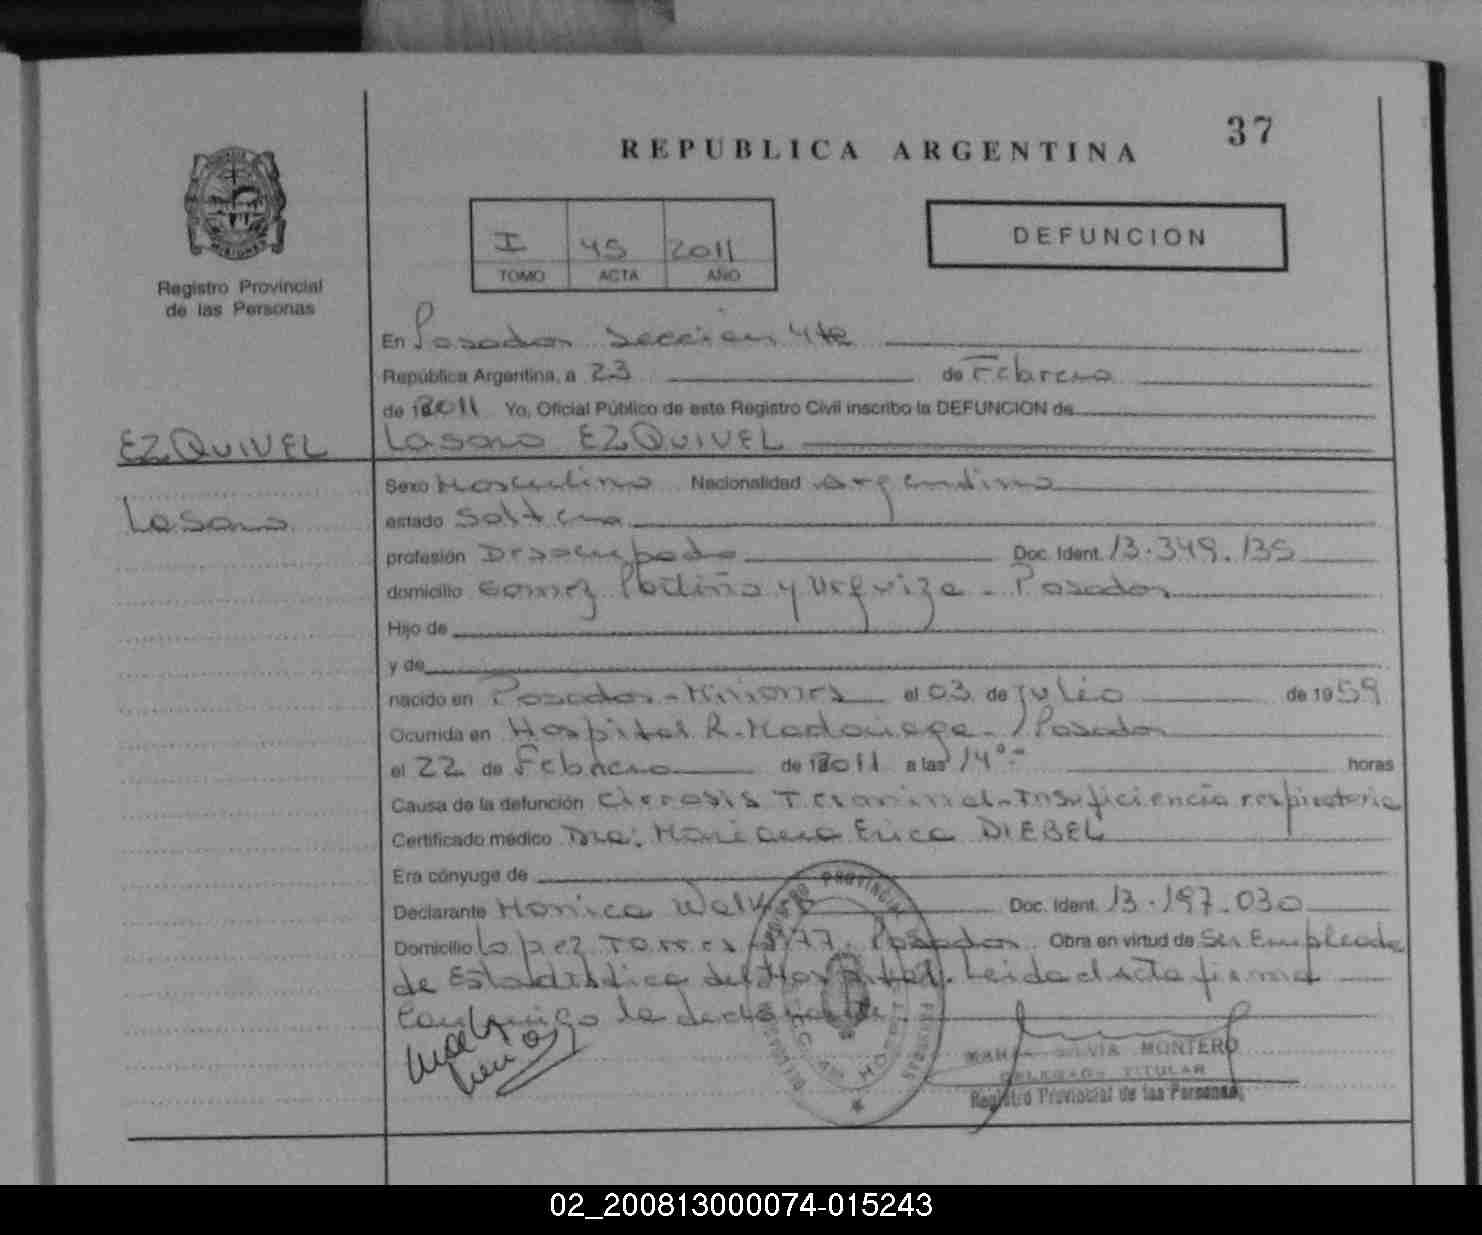 37
REPUBLICA ARGENTINA
I 45 2011
TOMO ACTA AÑO
DEFUNCION
Registro Provincial
de las Personas
En Posadas Sección 4ta
República Argentina, a 23 de Febrero
de 2011 Yo, Oficial Público de este Registro Civil inscribo la DEFUNCION de
EZQUIVEL
Lasaro EZQUIVEL
Lasaro
Sexo Masculino Nacionalidad argentino
estado Soltero
profesión Desocupado Doc. Ident. 13.349.135
domicilio Gomez Portiño y Urquiza - Posadas
Hijo de
y de
nacido en Posadas - Misiones el 03 de julio de 1959
Ocurrida en Hospital R. Madariaga - Posadas
el 22 de Febrero de 2011 a las 14°- horas
Causa de la defunción Cirrosis Terminal - Insuficiencia respiratoria
Certificado médico Dra: Mariana Erica DIEBEL
Era cónyuge de
Declarante Monica Doc. Ident. 13.197.030
Domicilio Lopez Torres Posadas Obra en virtud de Ser Empleada
de Estadistica del Hospital. Leida el Acta firma
Conmigo la declarante
MARIA SILVIA MONTERO
DELEGADO TITULAR
Registro Provincial de las Personas
02_200813000074-015243